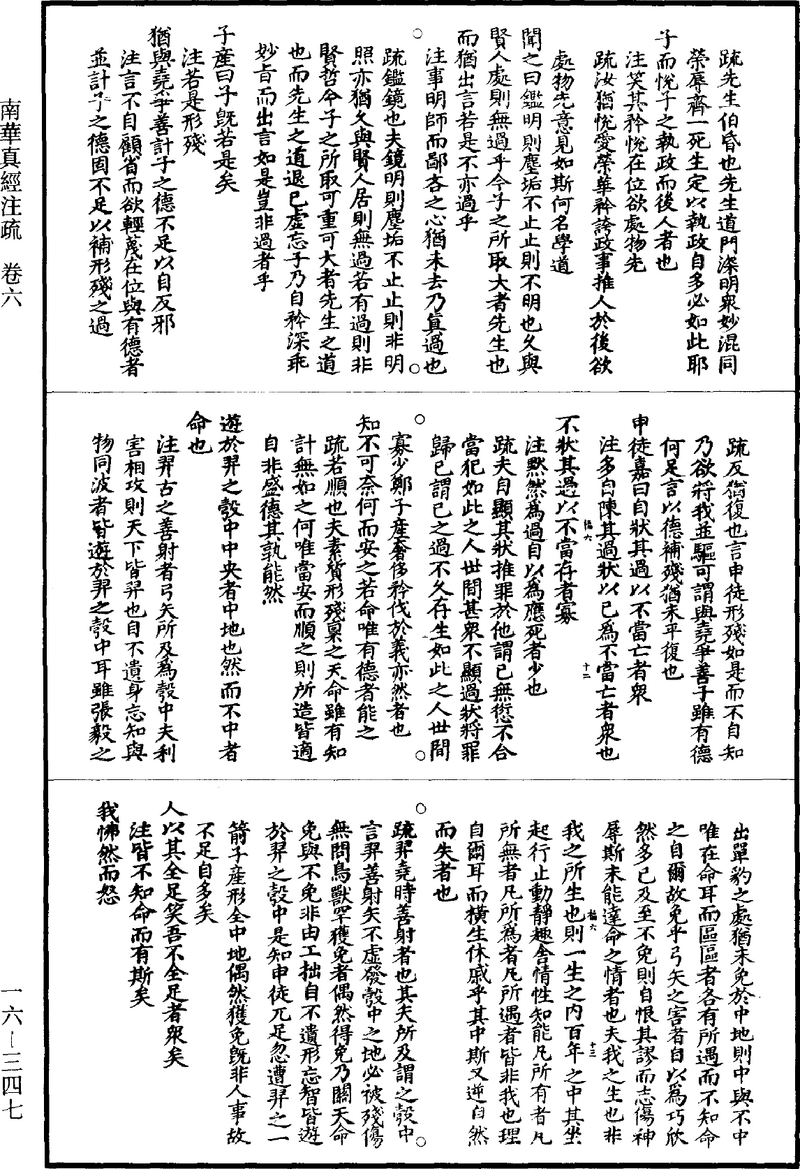 南華真經注疏　卷六
疏先生伯昏也先生道門深明衆妙混同
榮辱齊一死生定以執政自多必如此耶
子而悅子之執政而後人者也
注笑其矜悅在位欲處物先
疏汝猶悅愛榮華矜誇政事推人於後欲
處物先意見如斯何名學道
聞之曰鑑明則塵垢不止止則不明也久與
賢人處則無過乎今子之所取大者先生也
而猶出言若是不亦過乎
注事明師而鄙吝之心猶未去乃真過也
疏鑑鏡也夫鏡明則塵垢不止止則非明
照亦猶久與賢人居則無過若有過則非
賢哲今子之所取可重可大者先生之道
也而先生之道退已虛忘子乃自矜深乖
妙旨而出言如是豈非過者乎
子產曰子既若是矣
注若是形殘
猶與堯爭善計子之德不足以自反邪
注言不自顧省而欲輕蔑在位與有德者
並計子之德固不足以補形殘之過
疏反猶復也言申徒形殘如是而不自知
乃欲將我並驅可謂與堯爭善子雖有德
何足言以德補殘猶未平復也
申徒嘉曰自狀其過以不當亡者衆
注多自陳其過狀以已為不當亡者衆也
不狀其過以不當存者寡
注黙然為過自以為應死者少也
疏夫自顯其狀推罪於他謂已無愆不合
當犯如此之人世間甚衆不顯過狀將罪
歸已謂已之過不久存生如此之人世間
寡少鄭子產奢侈矜伐於義亦然者也
知不可奈何而安之若命唯有德者能之
疏若順也夫素質形殘稟之天命雖有知
計無如之何唯當安而順之則所造皆適
自非盛德其孰能然
遊於羿之彀中中央者中地也然而不中者
命也
注羿古之善射者弓矢所及為彀中夫利
害相攻則天下皆羿也自不遺身忘知與
物同波者皆遊於羿之彀中耳雖張毅之
出單豹之處猶未免於中地則中與不中
唯在命耳而區區者各有所遇而不知命
之自爾故免乎弓矢之害者自以為巧欣
然多已及至不免則自恨其謬而志傷神
辱斯未能達命之情者也夫我之生也非
我之所生也則一生之內百年之中其坐
起行止動靜趣舍情性知能凡所有者凡
所無者凡所為者凡所遇者皆非我也理
自爾耳而橫生休戚乎其中斯又逆自然
而失者也
疏羿堯時善射者也其矢所及謂之彀中
言羿善射矢不虛發彀中之地必被殘傷
無問鳥獸罕獲免者偶然得免乃關天命
免與不免非由工拙自不遺形忘智皆遊
於羿之彀中是知申徒兀足忽遭羿之一
箭子產形全中地偶然獲免既非人事故
不足自多矣
人以其全足笑吾不全足者衆矣
注皆不知命而有斯矣
我怫然而怒
一六－三四七